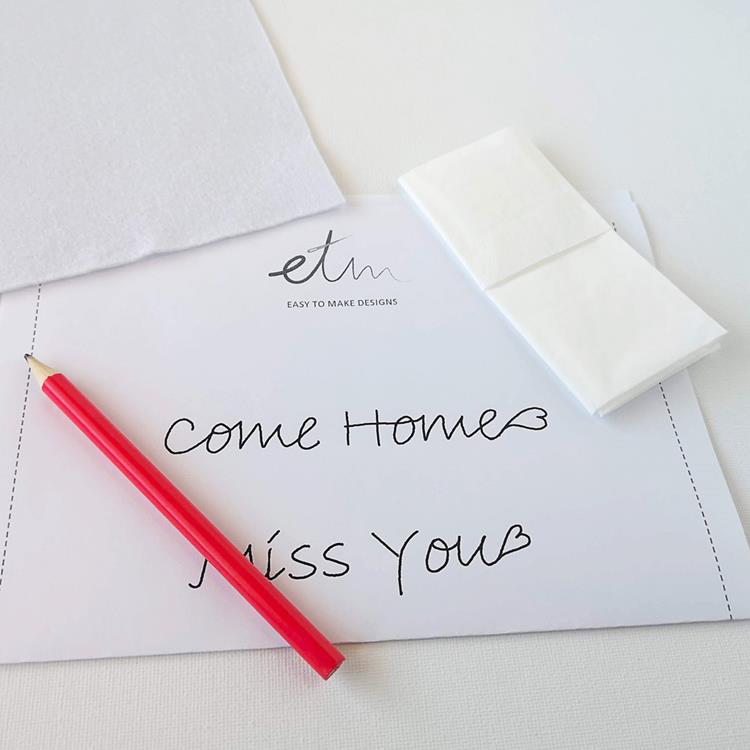 etm
EASY TO MAKE DESIGNS
Come Home
Miss You